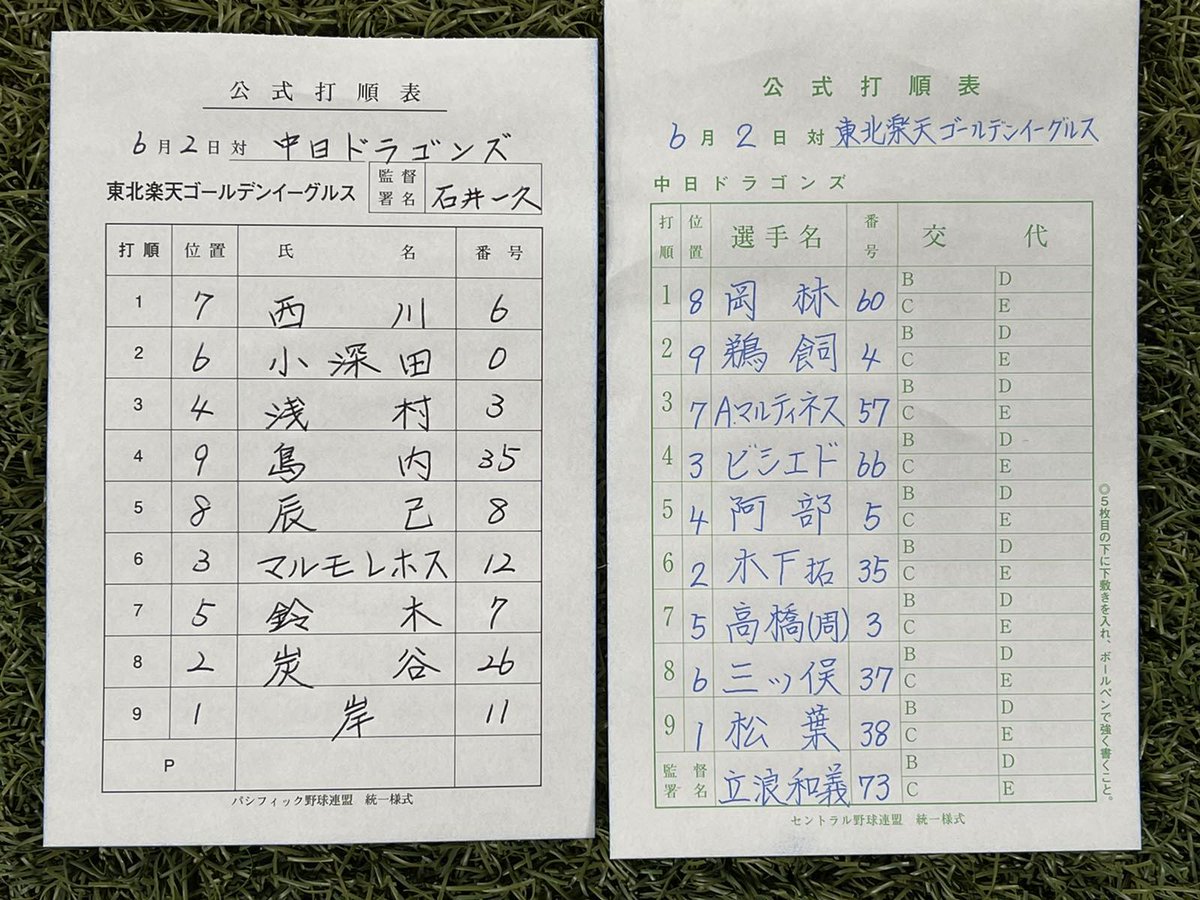 公式打順表
6月2日対 中日ドラゴンズ
東北楽天ゴールデンイーグルス 監督署名 石井一久
打順 位置 氏名 番号
1 7 西川 6
2 6 小深田 0
3 4 浅村 3
4 9 島内 35
5 8 辰己 8
6 3 マルモレホス 12
7 5 鈴木 7
8 2 炭谷 26
9 1 岸 11
P
パシフィック野球連盟 統一様式
公式打順表
6月2日対 東北楽天ゴールデンイーグルス
中日ドラゴンズ
打順 位置 選手名 番号 交代
1 8 岡林 60 B D
C E
2 9 鵜飼 4 B D
C E
3 7 A.マルティネス 57 B D
C E
4 3 ビシエド 66 B D
C E
5 4 阿部 5 B D
C E
6 2 木下拓 35 B D
C E
7 5 高橋(周) 3 B D
C E
8 6 三ッ俣 37 B D
C E
9 1 松葉 38 B D
C E
監督署名 立浪和義 73 B D
C E
セントラル野球連盟 統一様式
◎5枚目の下に下敷きを入れ、ボールペンで強く書くこと。